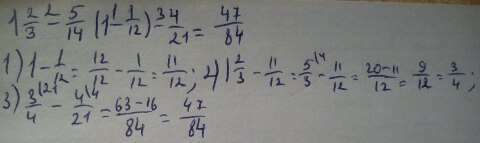 1 2/3 - 5/14 (1 - 1/12) - 4/21 = 47/84
1) 1 - 1/12 = 12/12 - 1/12 = 11/12; 2) 1 2/3 - 11/12 = 5/3 - 11/12 = 20-11/12 = 9/12 = 3/4;
3) 3/4 - 4/21 = 63-16/84 = 47/84